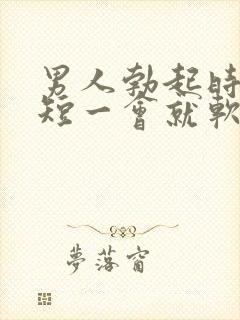 男人勃起時
短一會就軟
夢落窗